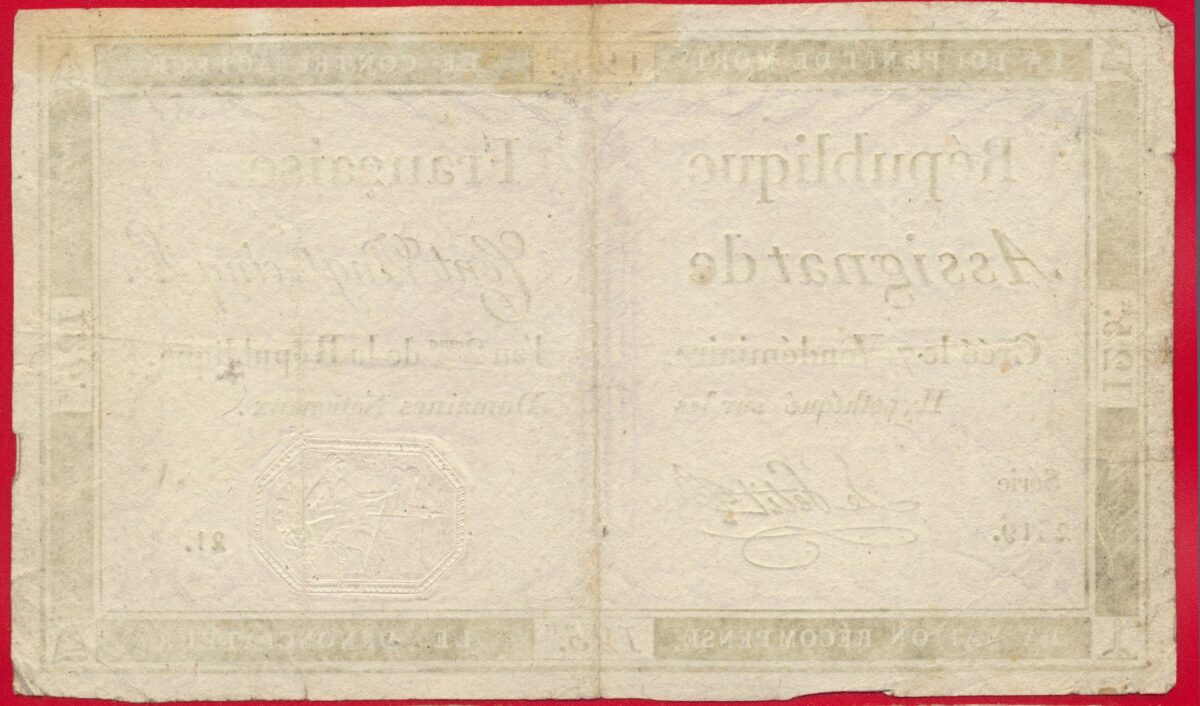 LA LOI PUNIT DE MORT LE CONTREFACTEUR
République Française
Assignat de Cent Vingt-cinq L.
Créé le 7 Vendémiaire l'an 2me de la République
Hypothéqué sur les Domaines Nationaux.
Série
21.
125.
LA NATION RÉCOMPENSE LE DÉNONCIATEUR